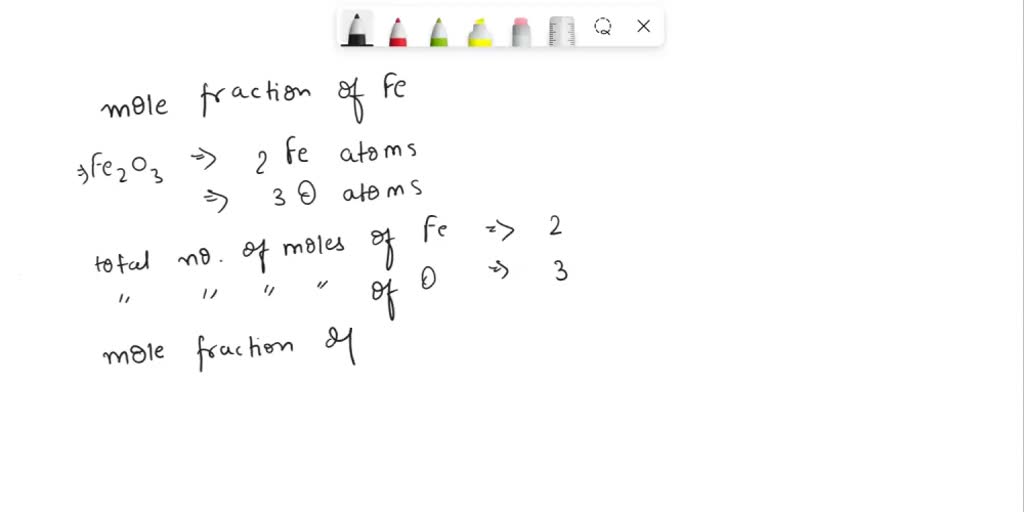 mole fraction of Fe
⇒ Fe₂O₃ ⇒ 2 Fe atoms
⇒ 3 O atoms
total no. of moles of Fe ⇒ 2
" " " " of O ⇒ 3
mole fraction of